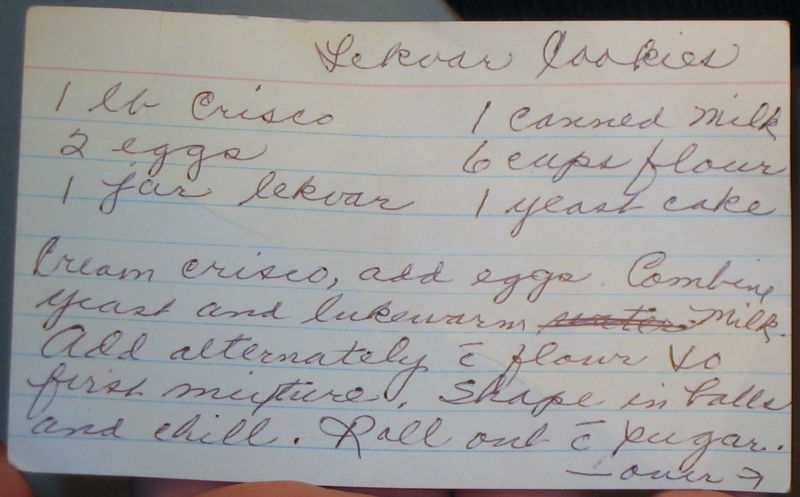 Lekvar Cookies
1 lb Crisco 1 canned milk
2 eggs 6 cups flour
1 jar lekvar 1 yeast cake
Cream crisco, add eggs. Combine
yeast and lukewarm water milk.
Add alternately c̄ flour to
first mixture. Shape in balls
and chill. Roll out c̄ sugar.
— over →